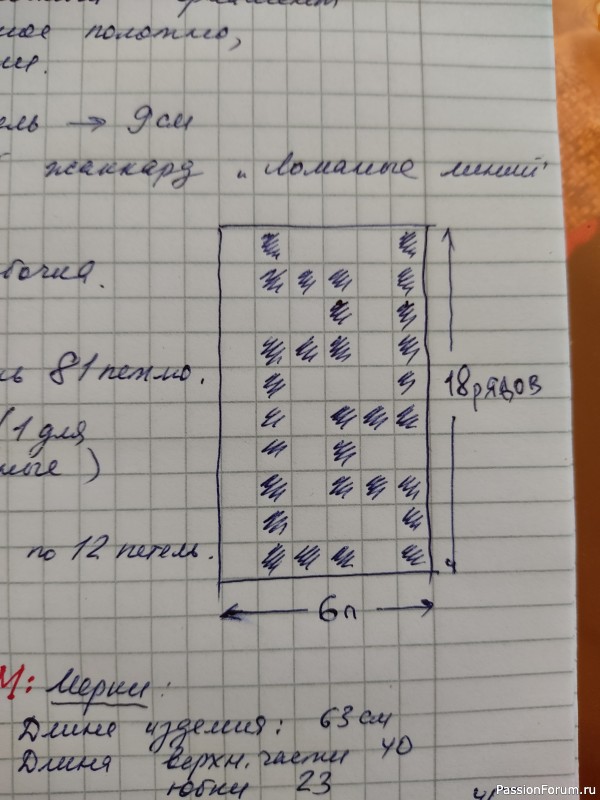 ное полотно,
→ 9 см
жаккард "Ломаные линии"
бочка.
81 петлю.
18 рядов
(1 для
)
по 12 петель.
6п
М: Мерки:
Длина изделия: 63 см
Длина верхн. части 40
юбки 23
PassionForum.ru